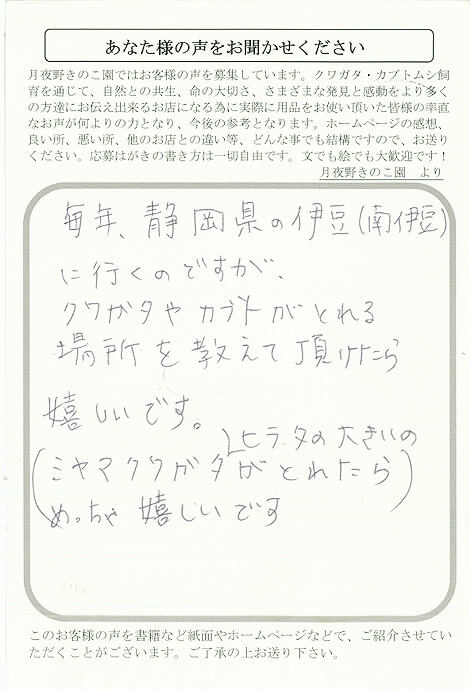 あなた様の声をお聞かせください
月夜野きのこ園ではお客様の声を募集しています。クワガタ・カブトムシ飼
育を通じて、自然との共生、命の大切さ、さまざまな発見と感動をより多く
の方達にお伝え出来るお店になる為に実際に用品をお使い頂いた皆様の率直
なお声が何よりの力となり、今後の参考となります。ホームページの感想、
良い所、悪い所、他のお店との違い等、どんな事でも結構ですので、お送り
ください。応募はがきの書き方は一切自由です。文でも絵でも大歓迎です！
月夜野きのこ園　より
毎年、静岡県の伊豆(南伊豆)
に行くのですが、
クワガタやカブトがとれる
場所を教えて頂けたら
嬉しいです。
ヒラタの大きいの
(ミヤマクワガタがとれたら
めっちゃ嬉しいです)
このお客様の声を書籍など紙面やホームページなどで、ご紹介させてい
ただくことがございます。ご了承の上お送り下さい。